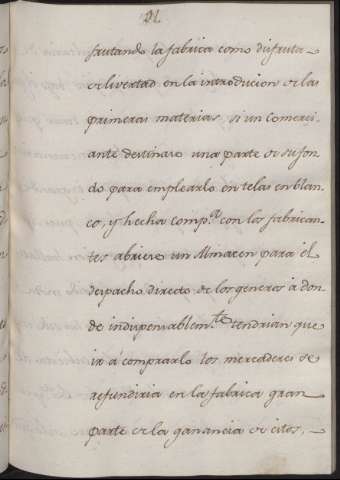 21
frutando la fabrica como disfruta
de livertad en la introducion de las
primeras materias, si un Comerci-
ante destinare una parte de su fon-
do para emplearlo en telas en blan-
co, y hecha comp.ª con los fabrican-
tes abriere un Almacen para el
despacho directo de los generos à don-
de indispensablem.te tendrian que
ir á comprarlo los mercaderes se
refundiria en la fabrica gran
parte de la ganancia de estos,